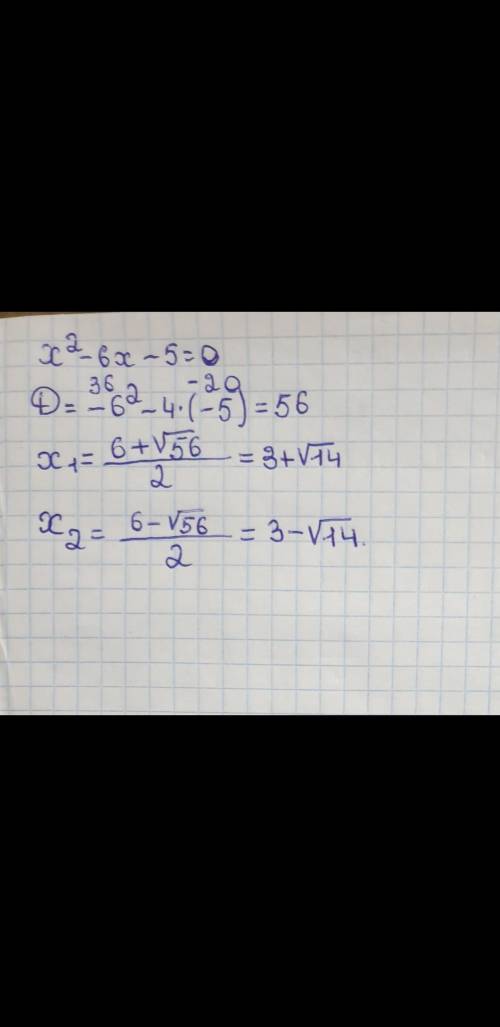 x² - 6x - 5 = 0
36 -20
D = -6² - 4·(-5) = 56
x₁ = (6 + √56)/2 = 3 + √14
x₂ = (6 - √56)/2 = 3 - √14.